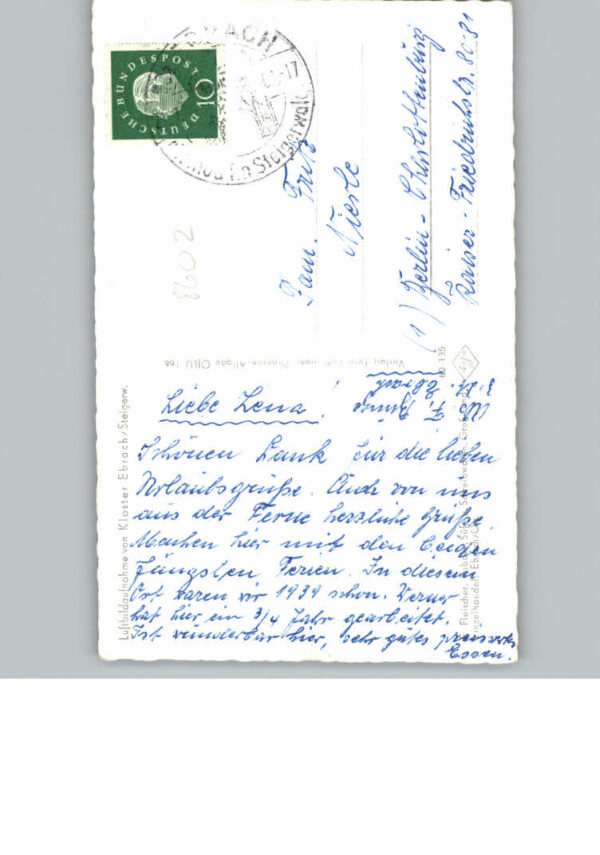 Liebe Lena!
Schönen Dank für die lieben
Urlaubsgrüße. Auch von uns
aus der Ferne herzliche Grüße.
Machen hier mit den beiden
Jüngsten Ferien. In diesem
Ort waren wir 1939 schon. Werner
hat hier ein 3/4 Jahr gearbeitet.
Ist wunderbar hier, sehr gutes preiswertes
Essen.
Fam. Fritz
Nierle
(1) Berlin-Charlottenburg
Kaiser-Friedrichstr. 80-81
DEUTSCHE BUNDESPOST
10
Steigerwald
8602
Luftbildaufnahme von Kloster Ebrach/Steigerw.
60 135